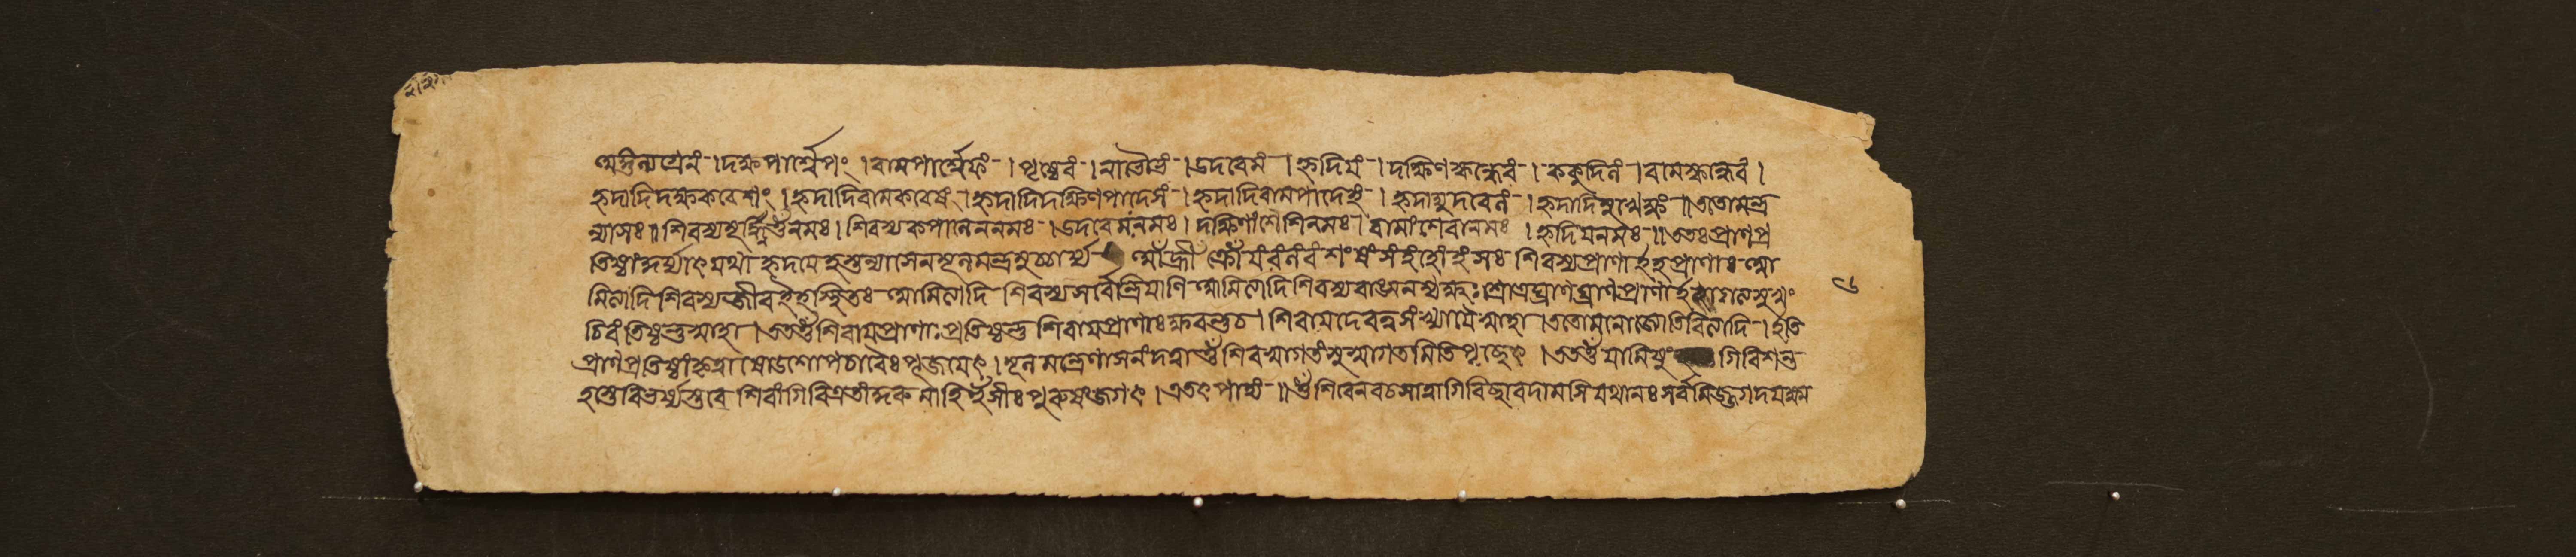 দক্ষপার্শ্বেপং । বামপার্শ্বেফং । পৃষ্ঠেবং । নাভৌভং । উদরেমং । হৃদিযং । দক্ষিণস্কন্ধেরং । ককুদিলং । বামস্কন্ধেবং ।
হৃদাদিদক্ষকরেশং । হৃদাদিবামকরেষং । হৃদাদিদক্ষিণপাদেসং । হৃদাদিবামপাদেহং । হৃদাদ্যুদরেলং । হৃদাদিমুখেক্ষং ॥ ততোমন্ত্র
ন্যাসঃ ॥ শিরস্যমূর্দ্ধ্নিওঁনমঃ । শিবস্যকপালেননমঃ । উদরেমংনমঃ । দক্ষিণাংশেশিনমঃ । বামাংশেবানমঃ । হৃদিযনমঃ ॥ ততঃপ্রাণপ্র
তিষ্ঠাং যথা হৃদযেহস্তন্যাসেনমূলমন্ত্রমুচ্চার্য্য আঁহ্রীঁক্রোঁযংরংলংবংশংষংসংহংহোংহংসঃ শিবস্যপ্রাণাইহপ্রাণাঃ আ
মিত্যাদি শিবস্যজীবইহস্থিতঃ আমিত্যাদি শিবস্যসর্বেন্দ্রিযাণি আমিত্যাদি শিবস্যবাঙ্মনশ্চক্ষুঃশ্রোত্রঘ্রাণপ্রাণাইহাগত্যসুখং
চিরংতিষ্ঠন্তুস্বাহা । ততওঁশিবাযপ্রাণাঃপ্রতিষ্ঠন্তু শিবাযপ্রাণাঃক্ষরন্তুচ । শিবাযদেবত্বসংখ্যাযৈস্বাহা । ততোমনোজোতিরিত্যাদি । ইতি
প্রাণপ্রতিষ্ঠাংকৃত্বা ষোডশোপচারৈঃপূজযেৎ । মূলমন্ত্রেণাসনংদত্বা ওঁ শিবস্বাগতংসুস্বাগতমিতিপৃচ্ছেৎ । ততওঁ যামিষুং গিরিশন্ত
হস্তেবিভর্ষ্যস্তবে শিবাংগিরিত্রতাংকুরু মাহিঁসীঃপুরুষংজগৎ । এতৎপাদ্যং ॥ ওঁ শিবেনবচসাত্বাগিরিছাবদামসি যথানঃসর্বমিজ্জগদযক্ষ্ম